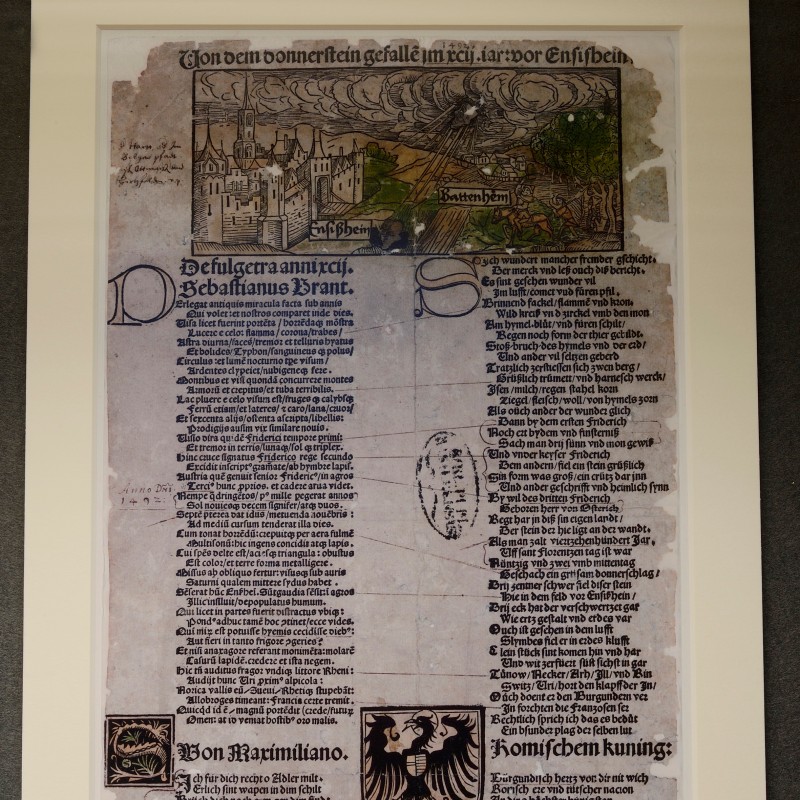 Von dem donnerstein gefallē jm xcij. iar: vor Ensisheim
Ensißheim
Battenheim
De fulgetra anni xcij.
Sebastianus Brant.
Perlegat antiquis miracula facta sub annis
Qui volet: et nostros comparet inde dies.
Visa licet fuerint portēta / horrēdaq; mōstra
Lucere e celo: flamma / corona / trabes /
Astra diurna / faces / tremor et telluris hyatus
Et bolides / Typhon / sanguineus q; polus /
Circulus: et lumē nocturno tpe visum /
Ardentes clypei et / nubigeneq; fere.
Montibus et visi quondā concurrere montes
Armorū et crepitus / et tuba terribilis.
Lac pluere e celo visum est / fruges q; calybsq;
Ferrū etiam / et lateres / et caro / lana / cruor /
Et sexcenta alijs / ostenta ascripta / libellis:
Prodigijs ausim vix similare nouis.
Visio dira quidē Friderici tempore primi:
Et tremor in terris / lunaq; / sol q; triplex.
Hinc cruce signatus Friderico rege secundo
Excidit inscript⁹ gramate / ab hymbre lapis.
Austria quē genuit senior Frideric⁹ / in agros
Terci⁹ hunc pprios. et cadere arua videt.
Nempe q̄dringētos / p⁹ mille pegerat annos
Sol nouiesq; decem signifer / atq; duos.
Septē preterea dat idus / metuenda nouēbris:
Ad mediū cursum tenderat illa dies.
Cum tonat horrēdū: crepuitq; per aera fulmē
Multisonū: hic ingens concidit atq; lapis.
Cui spēs delte est / aciesq; triangula: obustus
Est color / et terre forma metalligere.
Missus ab obliquo fertur: visusq; sub auris
Saturni qualem mittere sydus habet.
Sēserat hūc Ensheī. Sūtgaudia sēsit: i agros
Illic insiluit / depopulatus humum.
Qui licet in partes fuerit distractus vbiq;:
Pond⁹ adhuc tamē hoc ptinet / ecce vides.
Qui mirū est potuisse hyemis cecidisse dieb⁹:
Aut fieri in tanto frigore pgeries?
Et nisi anaxagore referant monimēta: molarē
Casurū lapidē. credere et ista negem.
Hic tn̄ auditus fragor vndiq; littore Rheni:
Audijt hunc Uri primi alpicola:
Norica vallis eū / Sueui / Rhetiq; stupebāt:
Allobroges timeant: Francia certe tremit.
Quicqd id ē / magnū portēdit (crede) futur
Omen: at id veniat hostib⁹ oro malis.
Sich wundert mancher fremder gschicht.
Der merck vnd leß ouch diß bericht.
Es sint gesehen wunder vil
Im lufft / comet vnd füren pfil.
Brinnend fackel / flamme vnd kron.
Wild kreiß vnd zirckel vmb den mon
Am hymel. blūt / vnd füren schilt /
Regen noch form der thier gebildt.
Stoß. bruch des hymels vnd der erd /
Und ander vil seltzen geberd
Tratzlich zerstiessen sich zwen berg /
Grüßlich trümett / vnd harnesch werck /
Isen / milch / regen stahel korn
Ziegel / fleisch / woll / von hymels zorn
Als ouch ander der wunder glich
Dann by dem ersten Friderich
Noch ert bydem vnd finsterniß
Sach man drij sunn vnd mon gewiß
Und vnder keyser Friderich
Dem andern / fiel ein stein grüßlich
Sin form was groß / ein crütz dar inn
Und ander geschrifft vnd heimlich synn
By wil des dritten Friderich
Geboren herr von Osterich
Regt har in diß sin eigen landt /
Der stein der hie ligt an der wandt.
Als man zalt viertzehenhundert Jar.
Uff sant Florentzen tag ist war
Nüntzig vnd zwei vmb mittentag
Geschach ein grūsam donnerschlag /
Drij zentner schwer fiel diser stein
Hie in dem feld vor Ensisheim /
Drij eck hat der verschwertzet gar
Wie ertz gestalt vnd erdes var
Ouch ist gesehen in dem lufft
Slymbes fiel er in erdes klufft
Clein stück sint komen hin vnd har
Und wit zerfüert süß sichst in gar
Tūnow / Necker / Arh / Jll / vnd Rin
Switz / Uri / hort den klapff der Jn /
Ouch doent er den Burgundern ver
In forchten die Franzosen ser
Rechtlich sprich ich das es bedūt
Ein bsunder plag der selben lut
Von Maximiliano.
Romischem kuning:
Ich für dich recht o Adler milt.
Erlich sint wapen in dim schilt
Burgundisch hertz von dir nit wich
Romisch ere vnd tütscher nacion
Anno Dni
1492